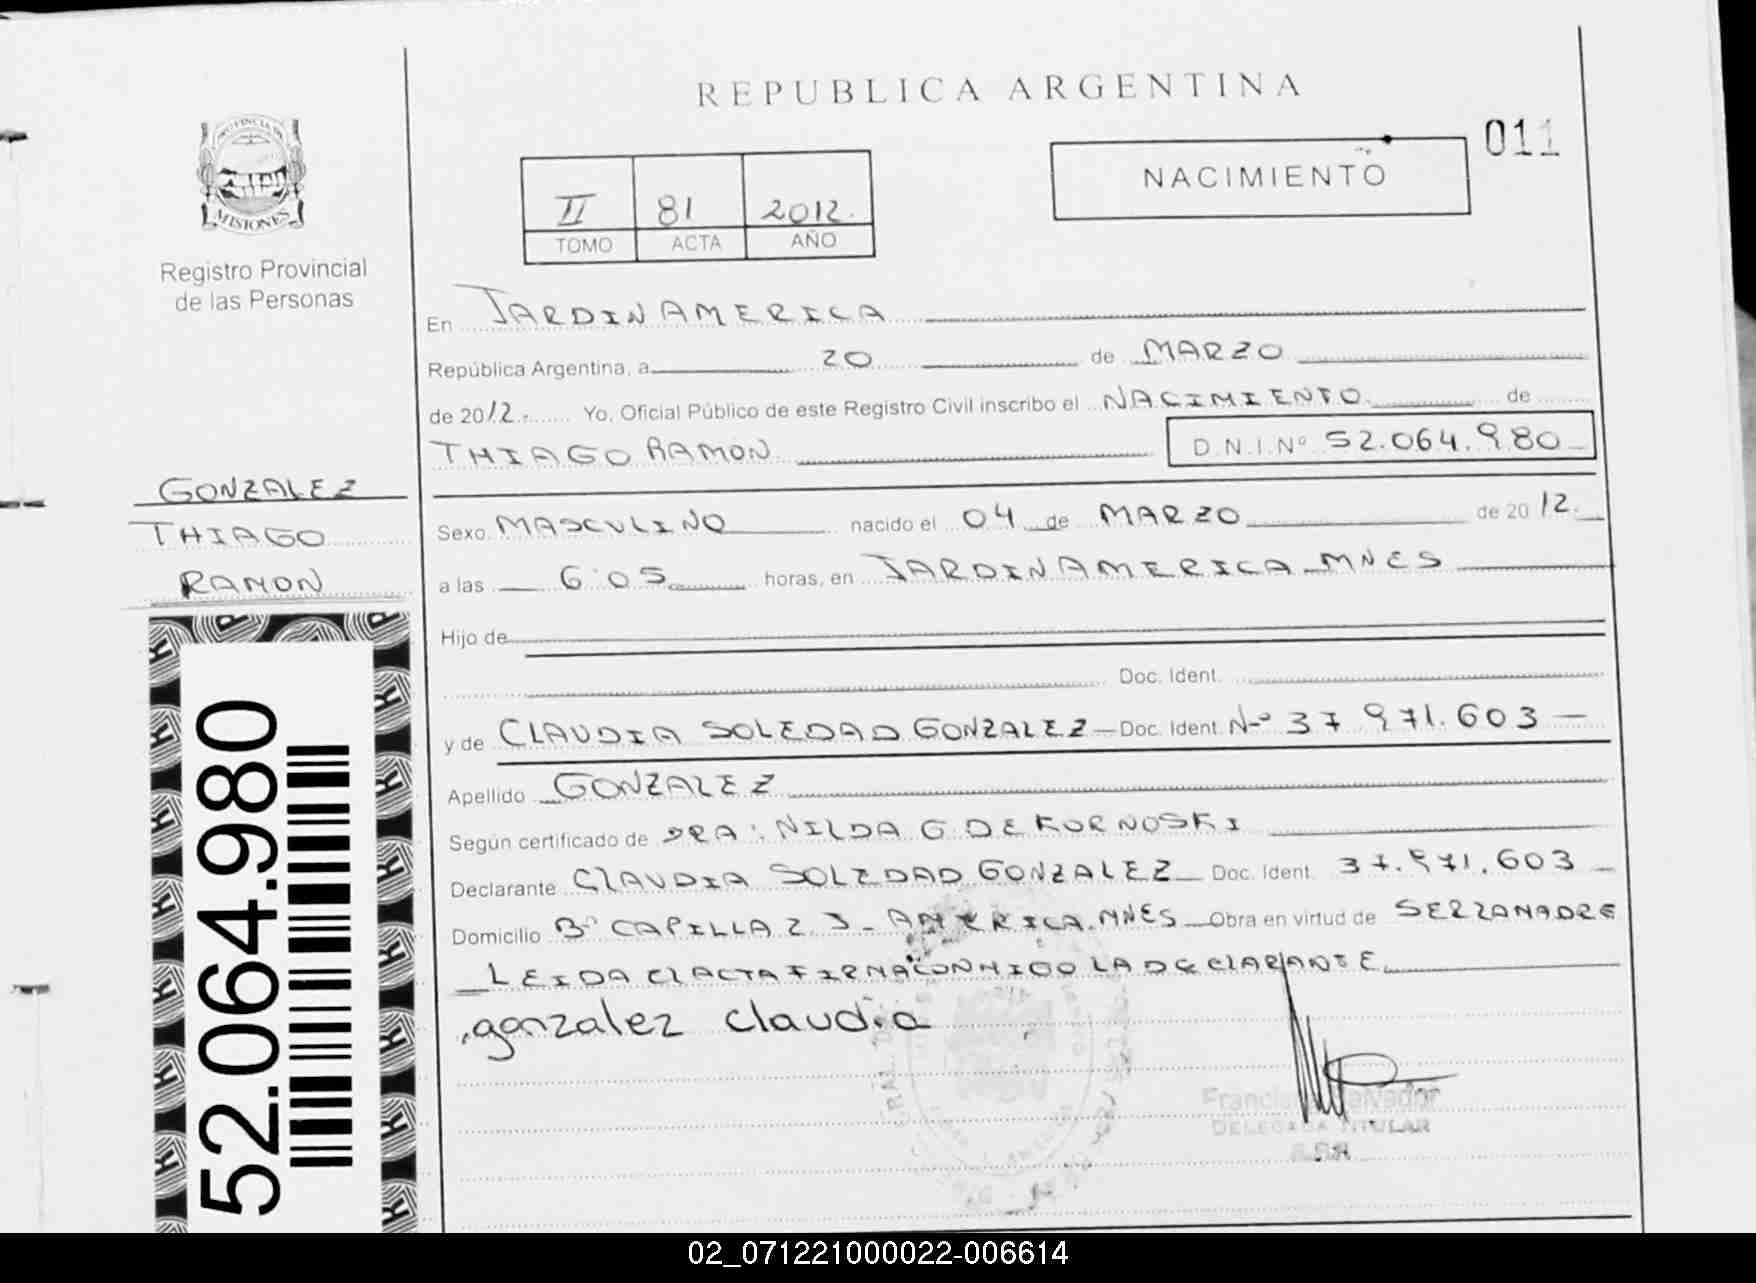 REPUBLICA ARGENTINA
011
NACIMIENTO
II 81 2012.
TOMO ACTA AÑO
PROVINCIA DE
MISIONES
Registro Provincial
de las Personas
En JARDIN AMERICA
República Argentina, a 20 de MARZO
de 2012. Yo, Oficial Público de este Registro Civil inscribo el NACIMIENTO de
THIAGO RAMON D.N.I.Nº 52.064.980
GONZALEZ
THIAGO
RAMON
Sexo MASCULINO nacido el 04 de MARZO de 2012.
a las 6:05 horas, en JARDIN AMERICA MNES
Hijo de
Doc. Ident.
y de CLAUDIA SOLEDAD GONZALEZ - Doc. Ident. Nº 37.971.603 -
Apellido GONZALEZ
Según certificado de DRA: NILDA G DE KORNOSKI
Declarante CLAUDIA SOLEDAD GONZALEZ Doc. Ident. 37.971.603
Domicilio Bº CAPILLA 2 J - AMERICA. MNES Obra en virtud de SER LA MADRE
LEIDA EL ACTA FIRMA CONMIGO LA DECLARANTE
gonzalez claudia
Salvador
DELEGADA TITULAR
52.064.980
02_071221000022-006614